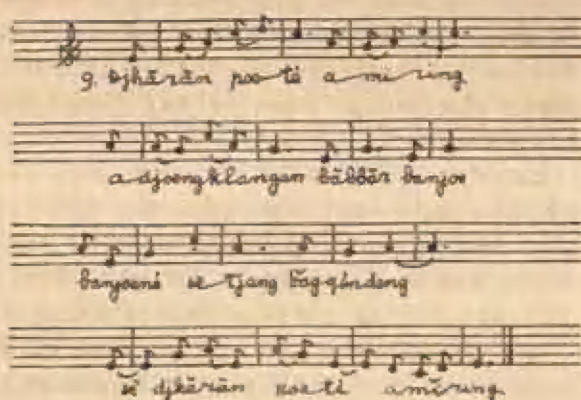 9. djhârân poe-té a-mi-ring
a-djoengklangan bâbbâr banjoe
banjoené sé tjang bâg-géndeng
sé djhârân poe-té amîring